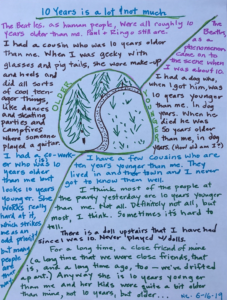 10 Years is a lot & not much
The Beatles, as human people, were all roughly 10
years older than me. Paul & Ringo still are.
The Beatles,
as a
phenomenon,
came on to
the scene when
I was about 10.
I had a cousin who was 10 years older
than me. When I was geeky with
glasses and pig tails, she wore make-up
and heels and
did all sorts
of cool teen-
ager things,
like dances
and skating
parties and
campfires
where someone
played a guitar.
OLDER
I had a dog who,
when I got him, was
10 years younger
than me. In dog
years. When he
died he was
50 years older
than me, in dog
years. (How old am I?)
I had a co-worker
who was 10
years older
than me and
looks 10 years
younger. She
works really
hard at it,
which strikes
me as an
odd priority
but many
people are
I have a few cousins who are
ten years younger than me. They
lived in another town and I never
got to know them well.
I think most of the people at
the party yesterday are 10 years younger
than me. Not all. Definitely not all, but
most, I think. Sometimes it's hard to
tell.
There is a doll upstairs that I have had
since I was 10. Never played w/dolls.
For a long time, a close friend of mine
(a long time that we were close friends, that
is, and a long time ago, too — we've drifted
apart.) Anyway she is 10 years younger
than me and her kids were quite a bit older
than mine, not 10 years, but older...
6-16-19